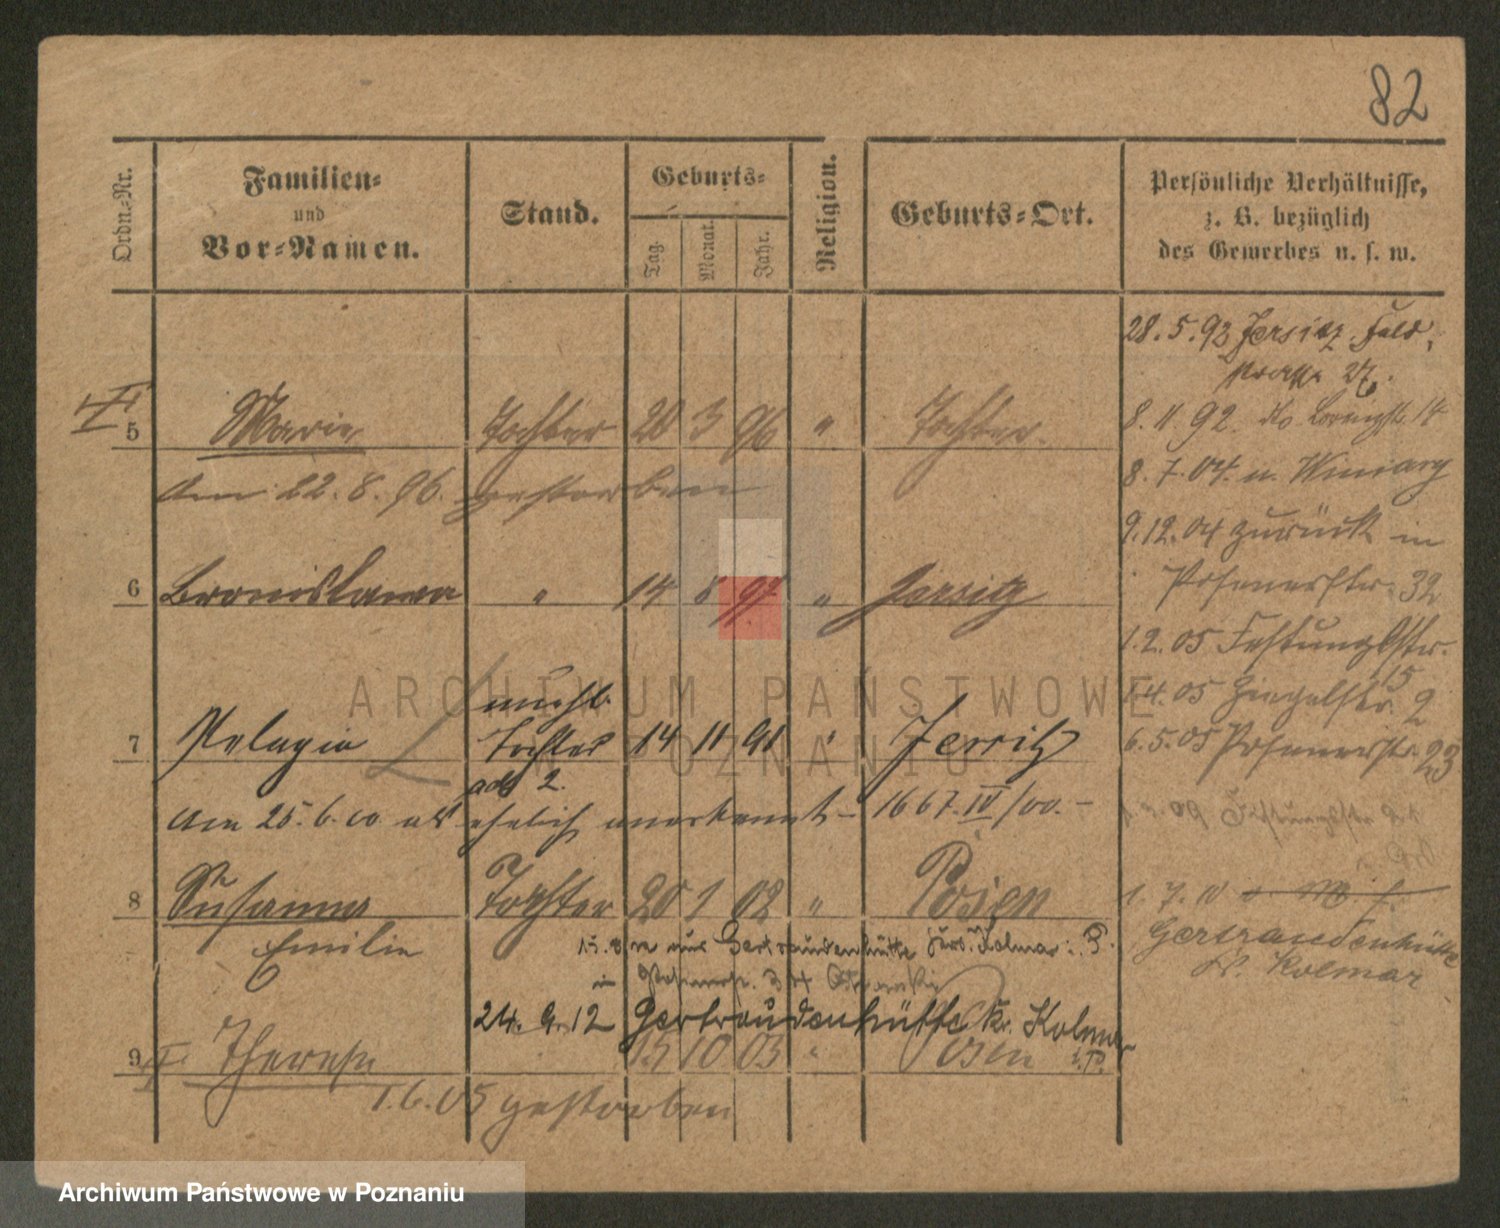 82
Ordn.-Nr.
Familien-
und
Vor-Namen.
Stand.
Geburts-
Tag.
Monat.
Jahr.
Religion.
Geburts-Ort.
Persönliche Verhältnisse,
z. B. bezüglich
des Gewerbes u. s. w.
28.5.92 Jersitz. Feld,
strasse 27.
8.11.92. do 14
8.7.04. n. Winiary
9.12.04 zurück in
Posenerstr. 32
1.2.05 Festungsstr.
15
1.4.05 Ziegelstr. 2
6.5.05 Posenerstr. 23
1.7.10
Gertraudenhütte
Kolmar
5 Marie Tochter 20 3 96 "
Am 22.8.96. gestorben
6 Bronislawa " 14 8 97 " Jersitz
7 Pelagia unehl. Tochter 14 11 91 " Jersitz
ad 2.
Am 25.6.00 als ehelich anerkannt – 1667.IV/00. –
8 Susanna Tochter 20 1 02 " Posen
Emilie
Gertraudenhütte Kolmar i. P.
24.9.12 Gertraudenhütte Kr. Kolmar
i.P.
9 Therese 15 10 03 " Posen
1.6.05 gestorben
ARCHIWUM PAŃSTWOWE
W POZNANIU
Archiwum Państwowe w Poznaniu